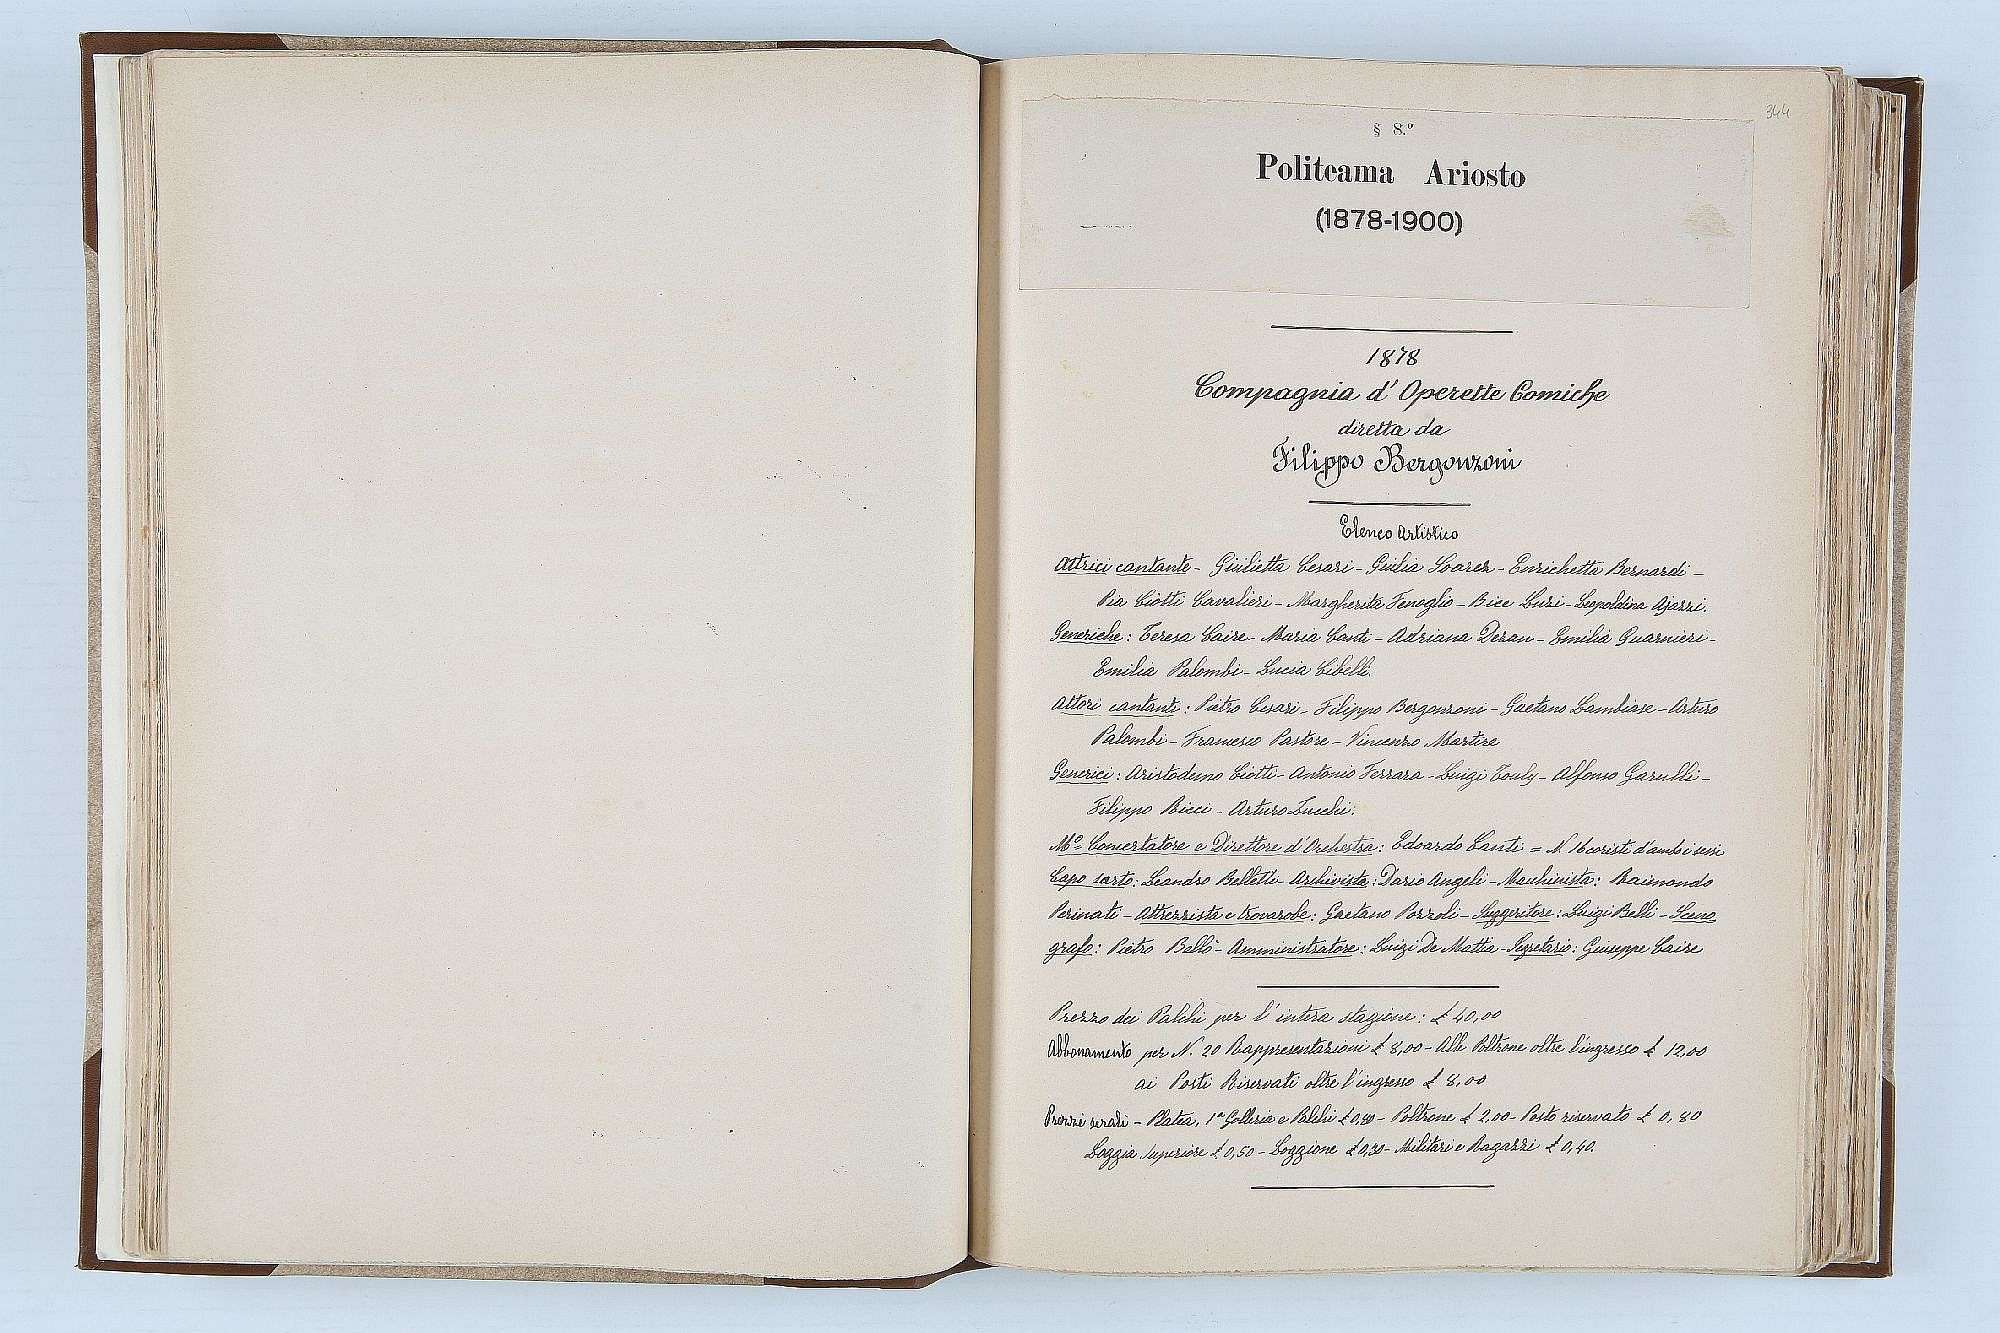 344
§ 8.º
Politeama Ariosto
(1878-1900)
1878
Compagnia d'Operette Comiche
diretta da
Filippo Bergonzoni
Elenco Artistico
Attrici cantante - Giulietta Cesari - Giulia Soarez - Enrichetta Bernardi -
Pia Ciotti Cavalieri - Margherita Fenoglio - Bice Luzi - Leopoldina Ajazzi.
Generiche: Teresa Caire - Maria Canti - Adriana Deran - Emilia Guarnieri -
Emilia Palombi - Lucia Cibelli.
Attori cantanti: Pietro Cesari - Filippo Bergonzoni - Gaetano Lambiase - Arturo
Palombi - Francesco Pastore - Vincenzo Martire
Generici: Aristodemo Ciotti - Antonio Ferrara - Luigi Touly - Alfonso Garulli -
Filippo Ricci - Arturo Zucchi.
Mº Concertatore e Direttore d'Orchestra: Edoardo Canti = N. 16 coristi d'ambi sessi
Capo sarto: Leandro Belletti - Archivista: Dario Angeli - Macchinista: Raimondo
Perinati - Attrezzista e trovarobe: Gaetano Pozzoli - Suggeritore: Luigi Belli - Sceno
grafo: Pietro Bello - Amministratore: Luigi De Mattia - Segretario: Giuseppe Caire
Prezzo dei Palchi per l'intera stagione: £ 40,00
Abbonamento per N. 20 Rappresentazioni £ 8,00 - Alle Poltrone oltre l'ingresso £ 12,00
ai Posti Riservati oltre l'ingresso £ 8,00
Prezzi serali - Platea, 1ª Galleria e Palchi £ 0,80 - Poltrone £ 2,00 - Posto riservato £ 0,80
Loggia Superiore £ 0,50 - Loggione £ 0,30 - Militari e Ragazzi £ 0,40.